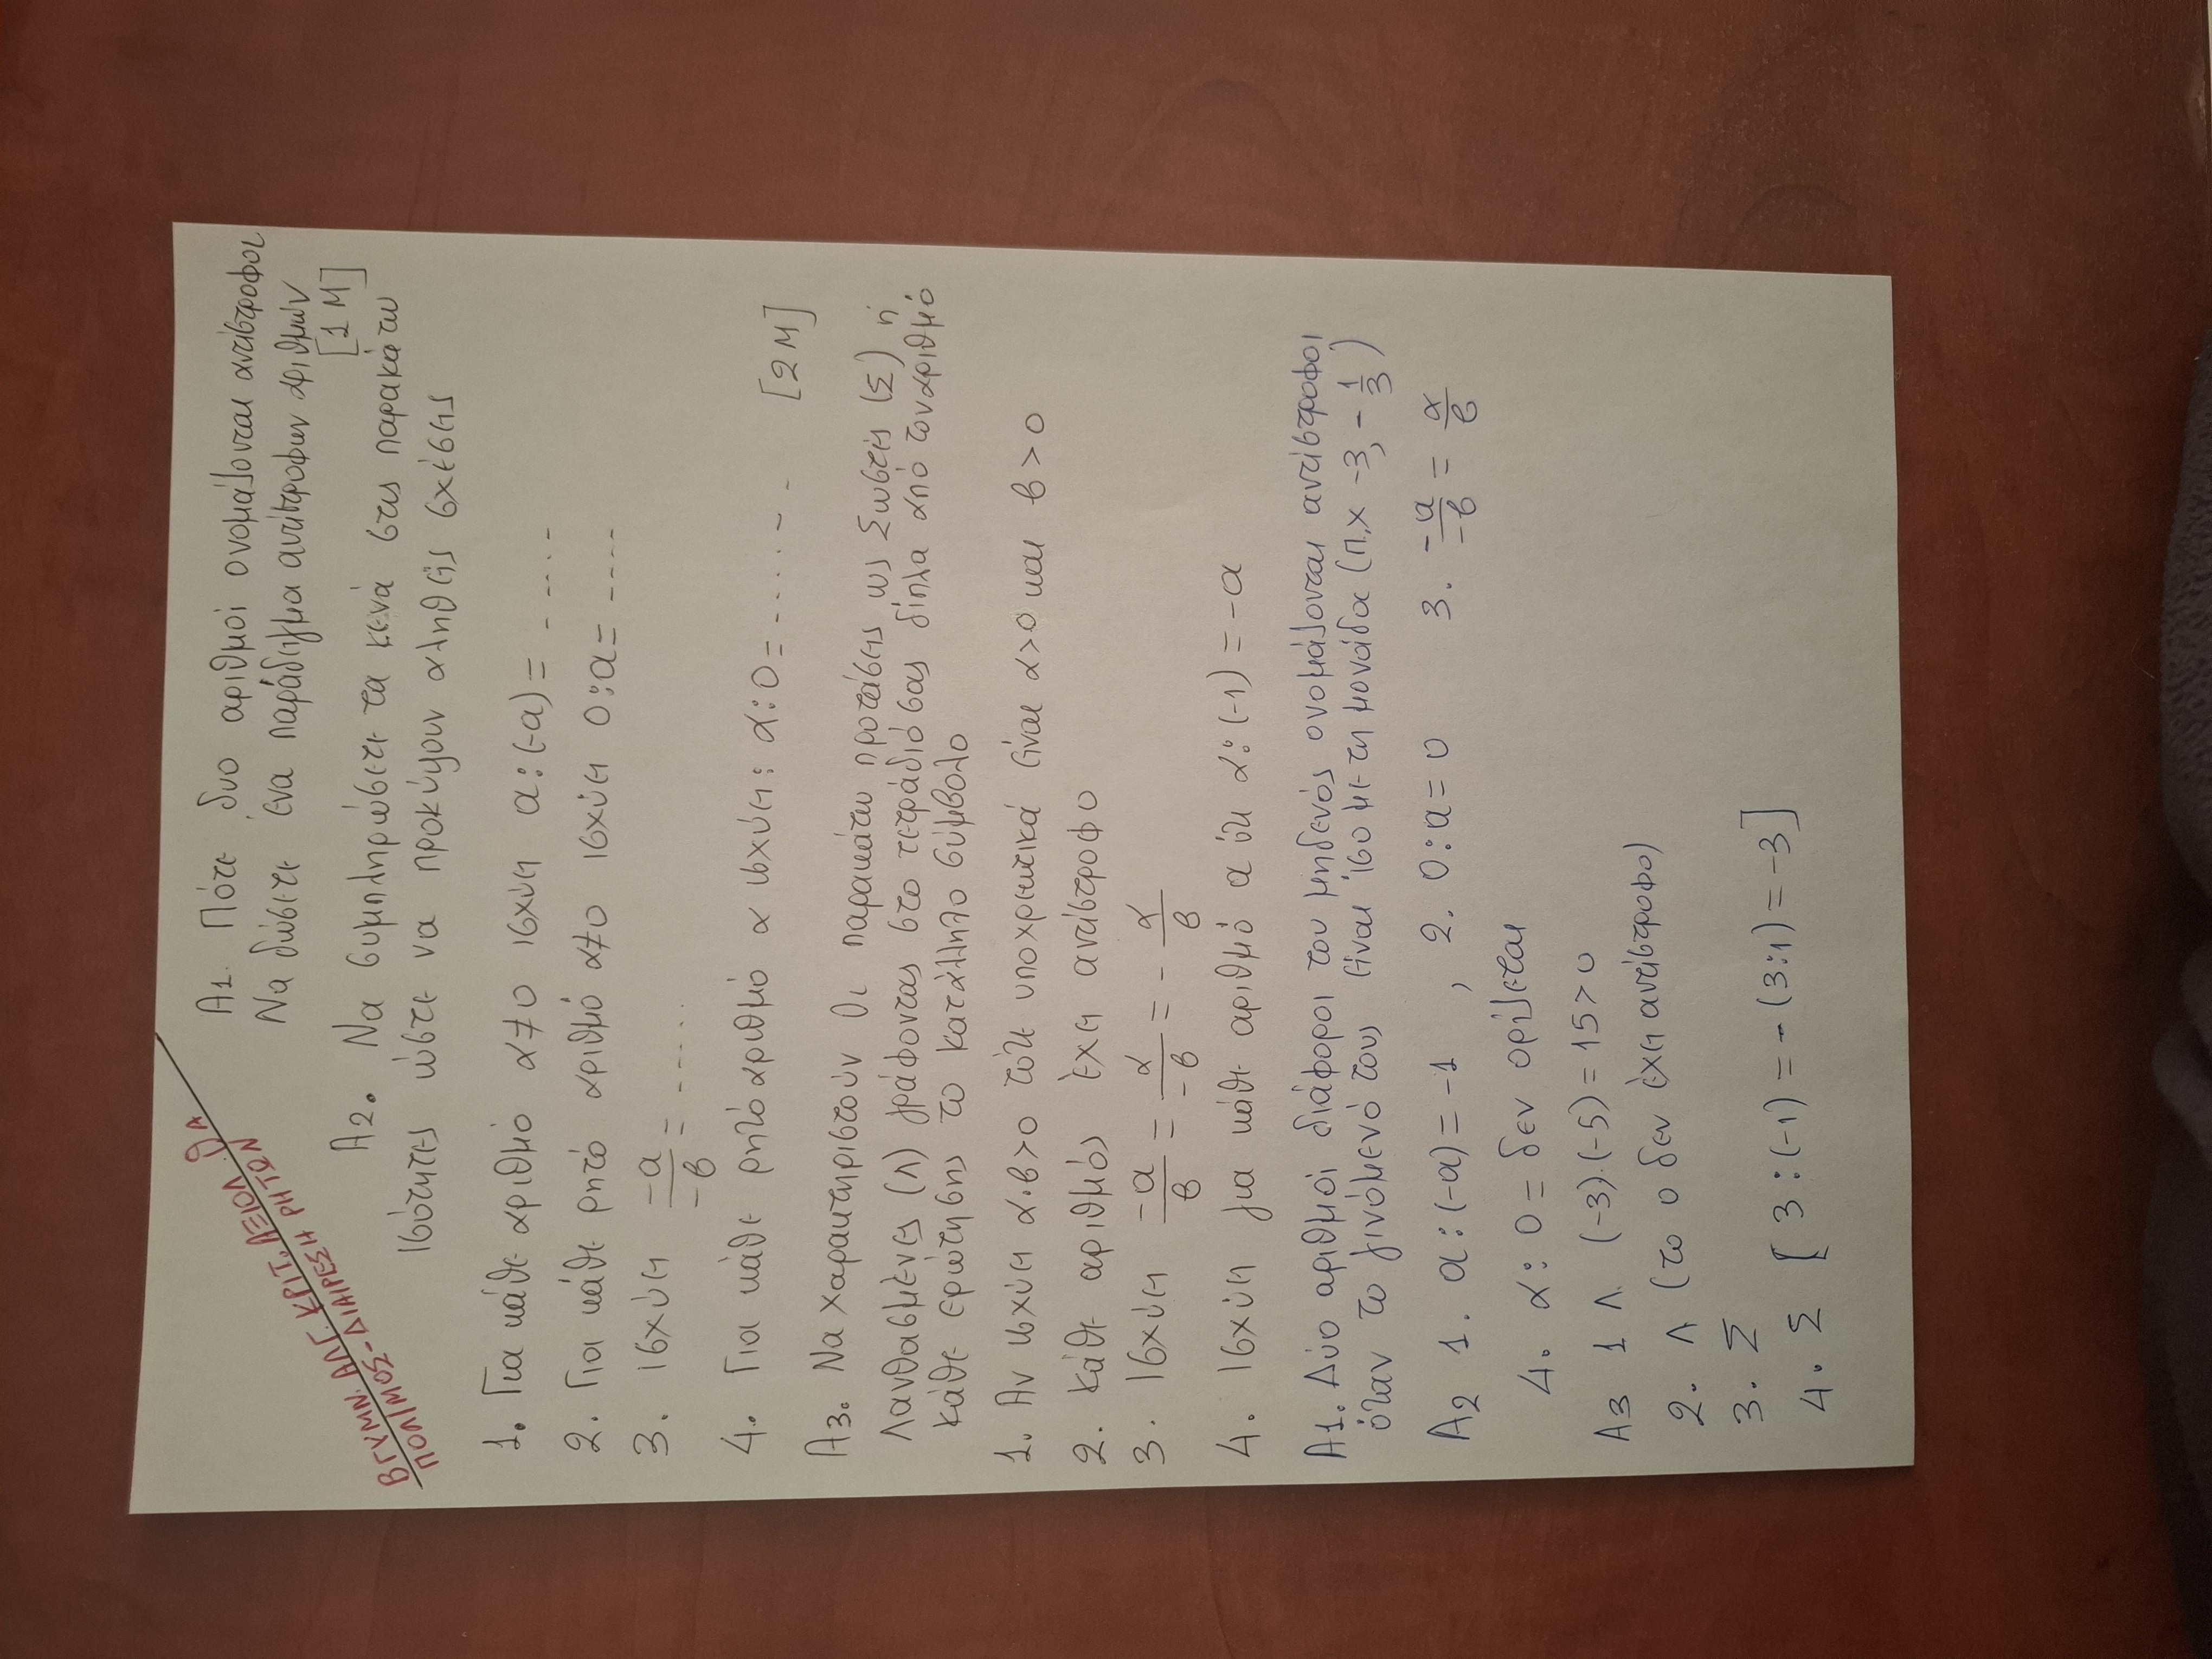 Β ΓΥΜΝ. ΑΛΓ. ΚΡΙΤ. ΑΞΙΟΛ.
ΠΟΛ/ΜΟΣ-ΔΙΑΙΡΕΣΗ ΡΗΤΩΝ
Α1. Πότε δυο αριθμοί ονομάζονται αντίστροφοι
Να δώσετε ένα παράδειγμα αντίστροφων αριθμών
[1 Μ]
Α2. Να συμπληρώσετε τα κενά στις παρακάτω
ισότητες ώστε να προκύψουν αληθείς σχέσεις
1. Για κάθε αριθμό α≠0 ισχύει α:(-α)= .....
2. Για κάθε ρητό αριθμό α≠0 ισχύει 0:α= ....
3. ισχύει -α/-β = .....
4. Για κάθε ρητό αριθμό α ισχύει: α:0= ......
[2Μ]
Α3. Να χαρακτηριστούν οι παρακάτω προτάσεις ως Σωστές (Σ) ή
Λανθασμένες (Λ) γράφοντας στο τετράδιό σας δίπλα από τον αριθμό
κάθε ερώτησης το κατάλληλο σύμβολο
1. Αν ισχύει α·β>0 τότε υποχρεωτικά είναι α>0 και β>0
2. Κάθε αριθμός έχει αντίστροφο
3. ισχύει -α/β = α/-β = - α/β
4. ισχύει για κάθε αριθμό α ότι α:(-1)=-α
Α1. Δύο αριθμοί διάφοροι του μηδενός ονομάζονται αντίστροφοι
όταν το γινόμενό τους είναι ίσο με τη μονάδα (π.χ -3, - 1/3)
Α2 1. α:(-α)=-1 , 2. 0:α=0 3. -α/-β = α/β
4. α:0= δεν ορίζεται
Α3 1 Λ (-3)·(-5)=15>0
2. Λ (το 0 δεν έχει αντίστροφο)
3. Σ
4. Σ [3:(-1)=-(3:1)=-3]